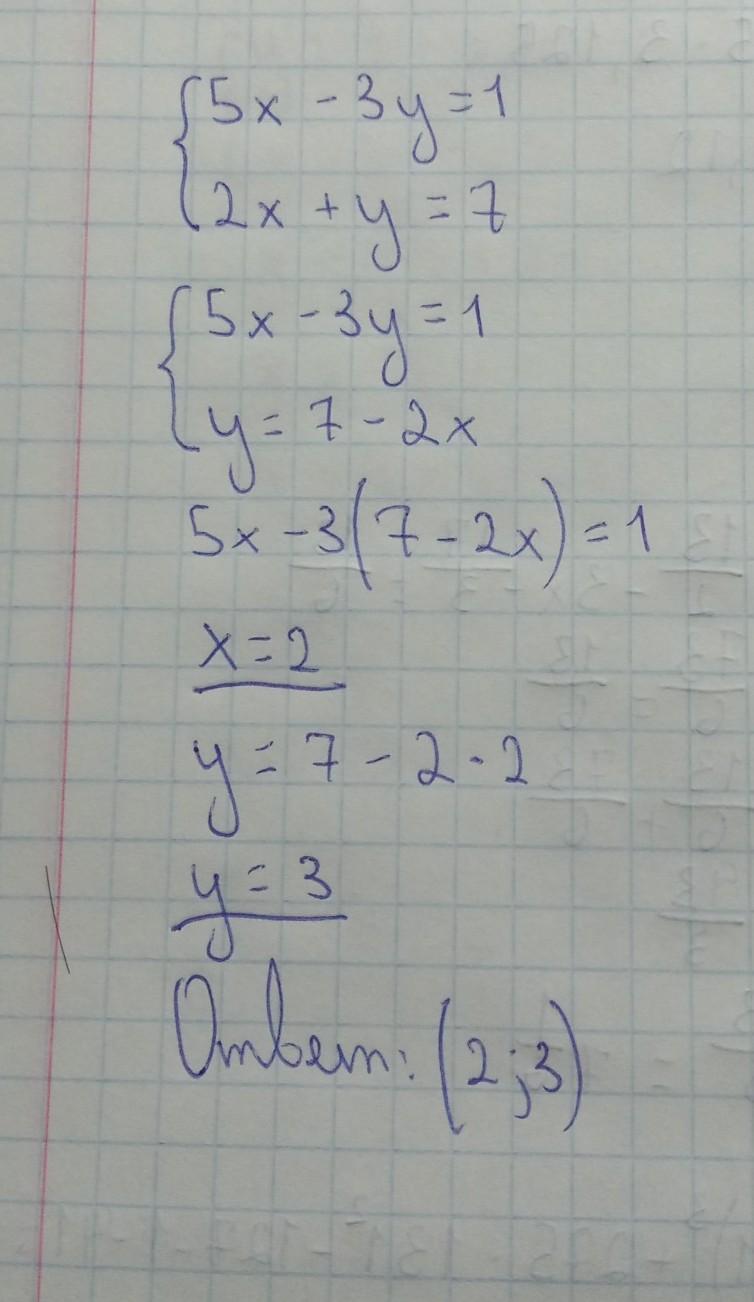 {5x - 3y = 1
{2x + y = 7
{5x - 3y = 1
{y = 7 - 2x
5x - 3(7 - 2x) = 1
x = 2
y = 7 - 2 · 2
y = 3
Ответ: (2;3)